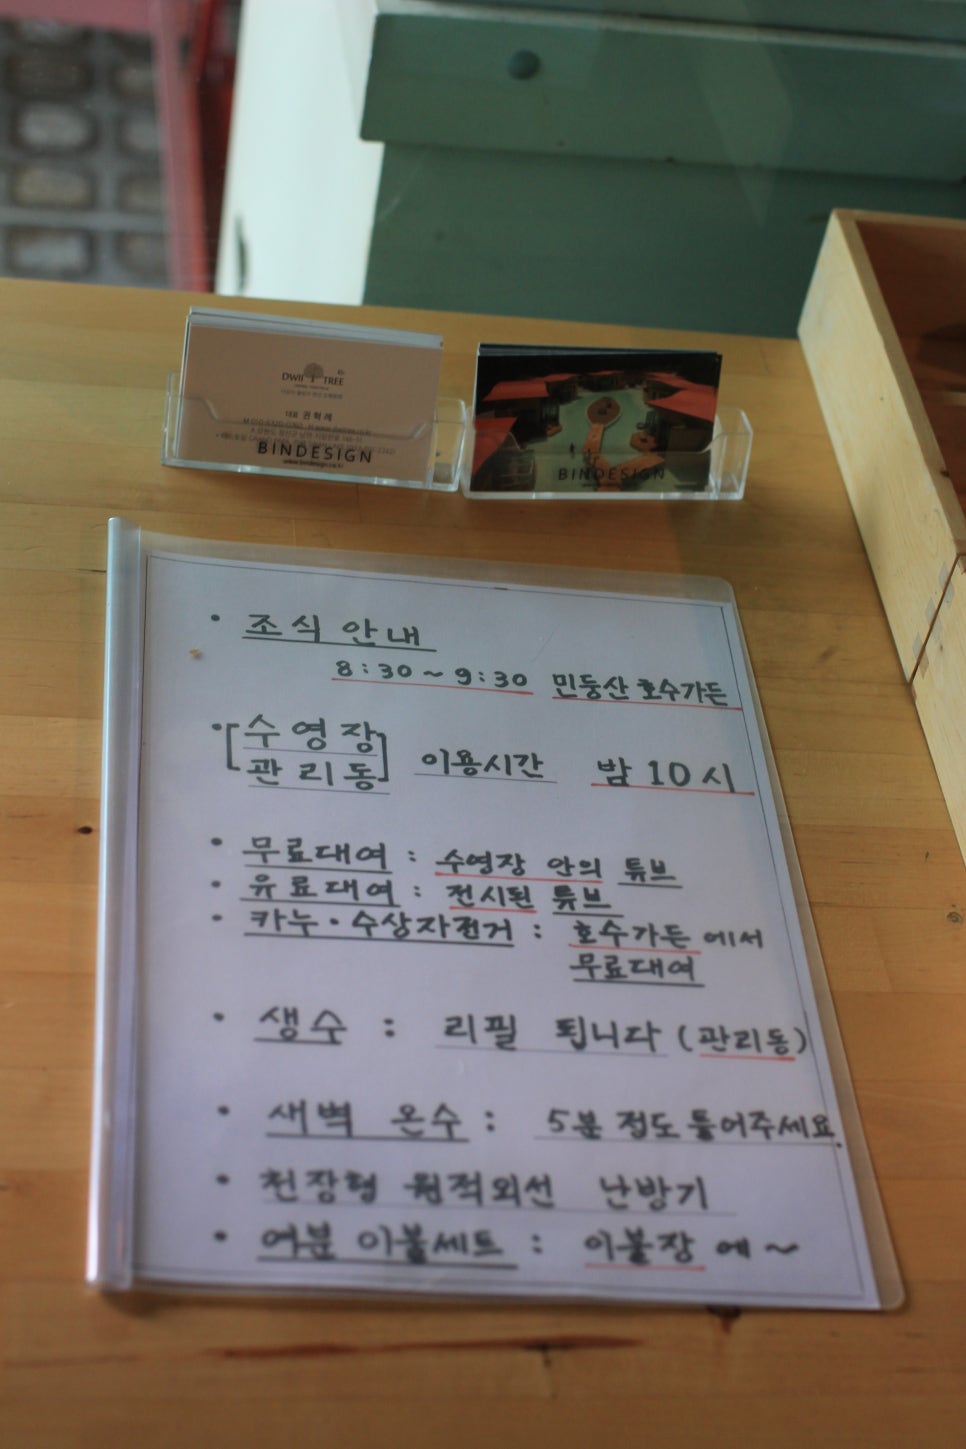 DWII TREE
대표 권혁례
BINDESIGN
www.bindesign.co.kr
BINDESIGN
• 조식 안내
8:30 ~ 9:30 민둥산 호수가든
• [수영장
관리동] 이용시간 밤 10시
• 무료대여 : 수영장 안의 튜브
• 유료대여 : 전시된 튜브
• 카누 · 수상자전거 : 호수가든 에서
무료대여
• 생수 : 리필 됩니다 (관리동)
• 새벽 온수 : 5분 정도 틀어주세요.
• 천장형 원적외선 난방기
• 여분 이불세트 : 이불장 에 ~